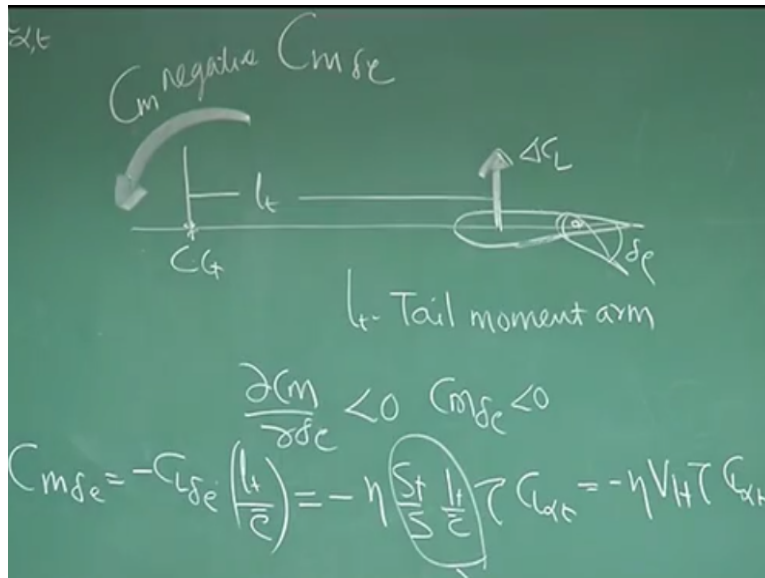 α,t
Cm negative Cmδe
ΔCL
lt
CG
δe
lt - Tail moment arm
∂Cm/∂δe <0 Cmδe <0
Cmδe = -CLδe (lt/c̄) = -η St/S lt/c̄ τ CLαt = -η VH τ CLαt